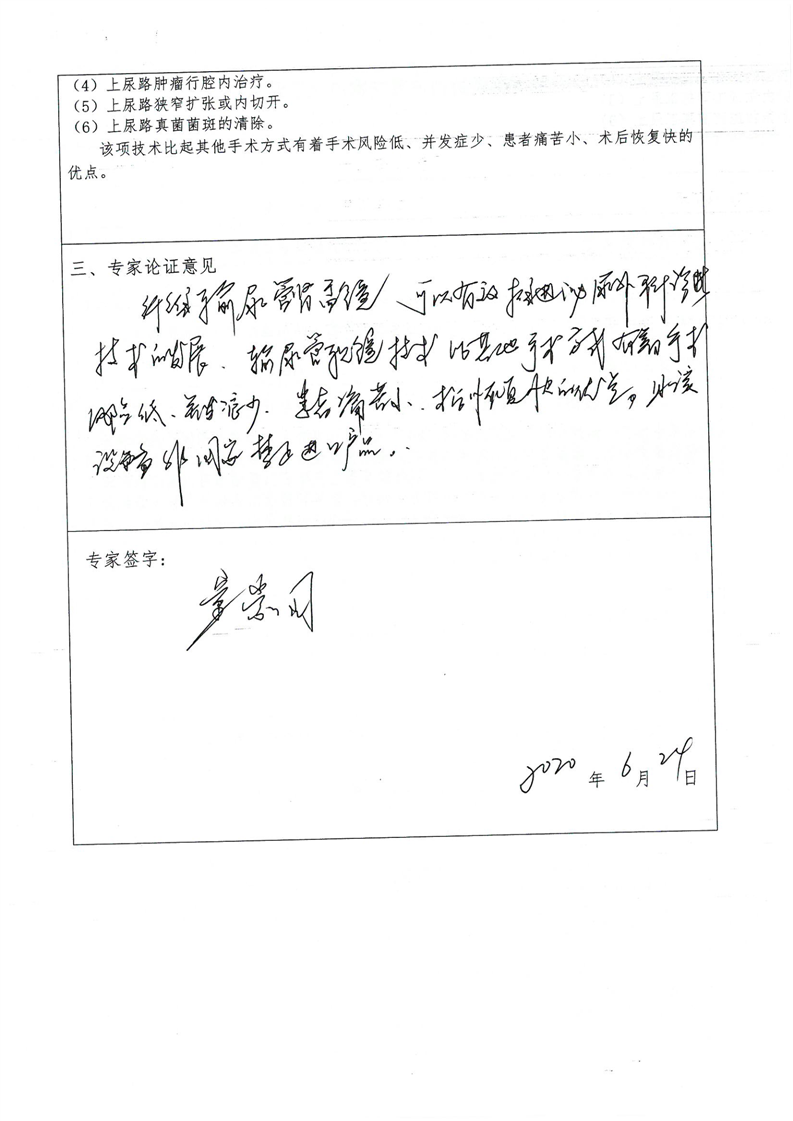 （4）上尿路肿瘤行腔内治疗。
（5）上尿路狭窄扩张或内切开。
（6）上尿路真菌菌斑的清除。
该项技术比起其他手术方式有着手术风险低、并发症少、患者痛苦小、术后恢复快的
优点。
三、专家论证意见
纤维输尿管肾盂镜 可以有效推进泌尿外科诊
技术的发展、输尿管软镜技术比其他手术方式有着手术
风险低、并发症少、患者痛苦小、术后恢复快的优点，该
设备 国家禁止进口产品。
专家签字：
2020年6月24日